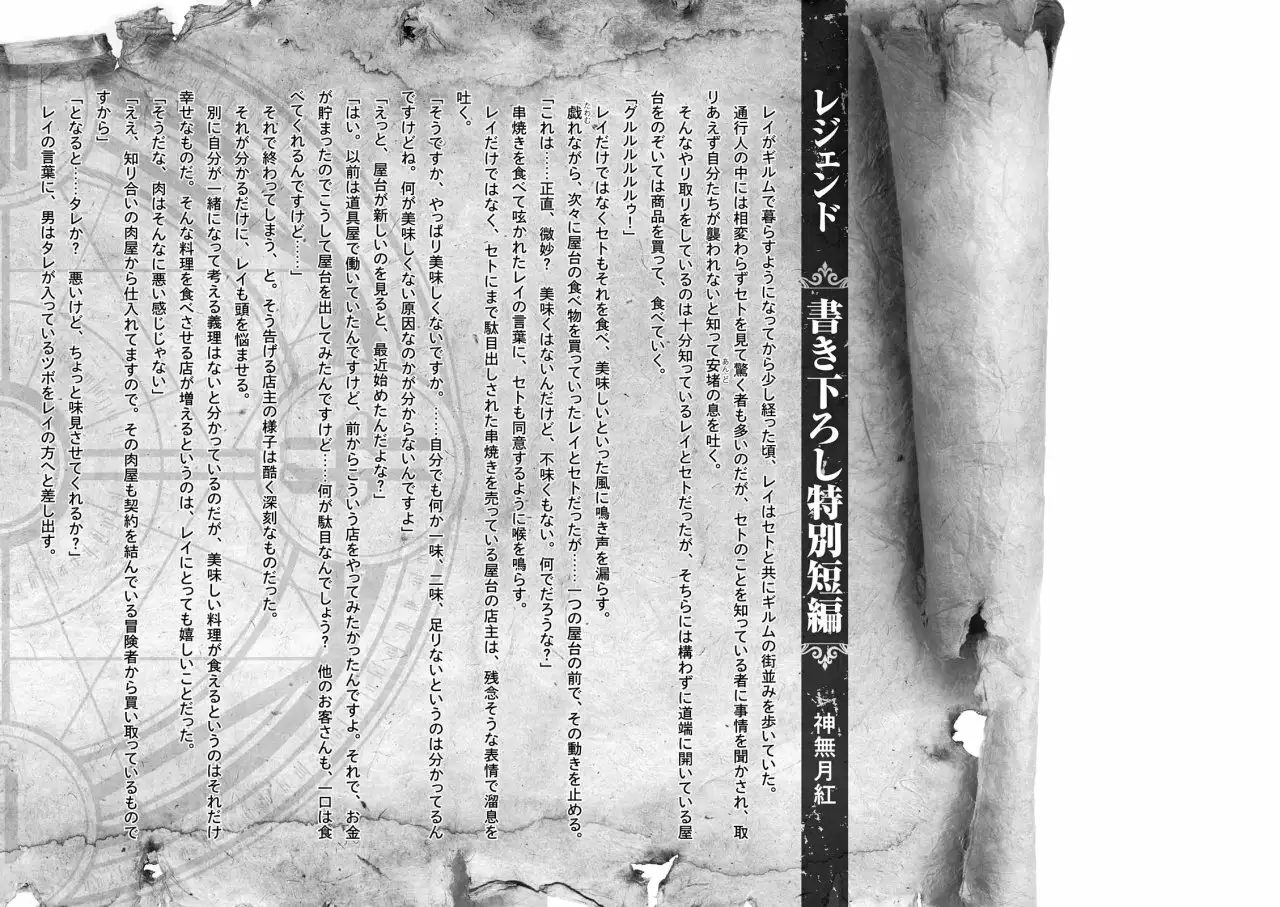 レジェンド 書き下ろし特別短編 神無月紅
レイがギルムで暮らすようになってから少し経った頃、レイはセトと共にギルムの街並みを歩いていた。
通行人の中には相変わらずセトを見て驚く者も多いのだが、セトのことを知っている者に事情を聞かされ、取
りあえず自分たちが襲われないと知って安堵の息を吐く。
そんなやり取りをしているのは十分知っているレイとセトだったが、そちらには構わずに道端に開いている屋
台をのぞいては商品を買って、食べていく。
「グルルルルルルゥ！」
レイだけではなくセトもそれを食べ、美味しいといった風に鳴き声を漏らす。
戯れながら、次々に屋台の食べ物を買っていったレイとセトだったが……一つの屋台の前で、その動きを止める。
「これは……正直、微妙？　美味くはないんだけど、不味くもない。何でだろうな？」
串焼きを食べて呟かれたレイの言葉に、セトも同意するように喉を鳴らす。
レイだけではなく、セトにまで駄目出しされた串焼きを売っている屋台の店主は、残念そうな表情で溜息を
吐く。
「そうですか、やっぱり美味しくないですか。……自分でも何か一味、二味、足りないというのは分かってるん
ですけどね。何が美味しくない原因なのかが分からないんですよ」
「えっと、屋台が新しいのを見ると、最近始めたんだよな？」
「はい。以前は道具屋で働いていたんですけど、前からこういう店をやってみたかったんですよ。それで、お金
が貯まったのでこうして屋台を出してみたんですけど……何が駄目なんでしょう？　他のお客さんも、一口は食
べてくれるんですけど……」
それで終わってしまう、と。そう告げる店主の様子は酷く深刻なものだった。
それが分かるだけに、レイも頭を悩ませる。
別に自分が一緒になって考える義理はないと分かっているのだが、美味しい料理が食えるというのはそれだけ
幸せなものだ。そんな料理を食べさせる店が増えるというのは、レイにとっても嬉しいことだった。
「そうだな、肉はそんなに悪い感じじゃない」
「ええ、知り合いの肉屋から仕入れてますので。その肉屋も契約を結んでいる冒険者から買い取っているもので
すから」
「となると……タレか？　悪いけど、ちょっと味見させてくれるか？」
レイの言葉に、男はタレが入っているツボをレイの方へと差し出す。